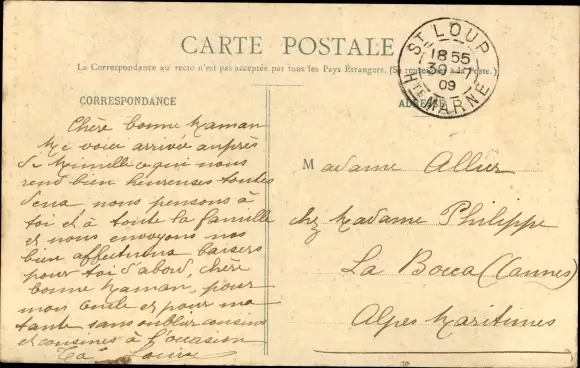 CARTE POSTALE
La Correspondance au recto n'est pas acceptée par tous les Pays Étrangers. (Se renseigner à la Poste.)
ST LOUP
1855
30
09
HTE MARNE
CORRESPONDANCE
ADRESSE
Chère bonne Maman
Me voici arrivée auprès
de Mimille ce qui nous
rend bien heureuses toutes
deux, nous pensons à
toi et à toute la famille
et nous envoyons nos
bien affectueux baisers
pour toi d'abord, chère
bonne Maman, pour
mon oncle et pour ma
tante sans oublier cousins
et cousines à l'occasion
Ta
Madame Allier
chez Madame Philippe
La Bocca (Cannes)
Alpes Maritimes